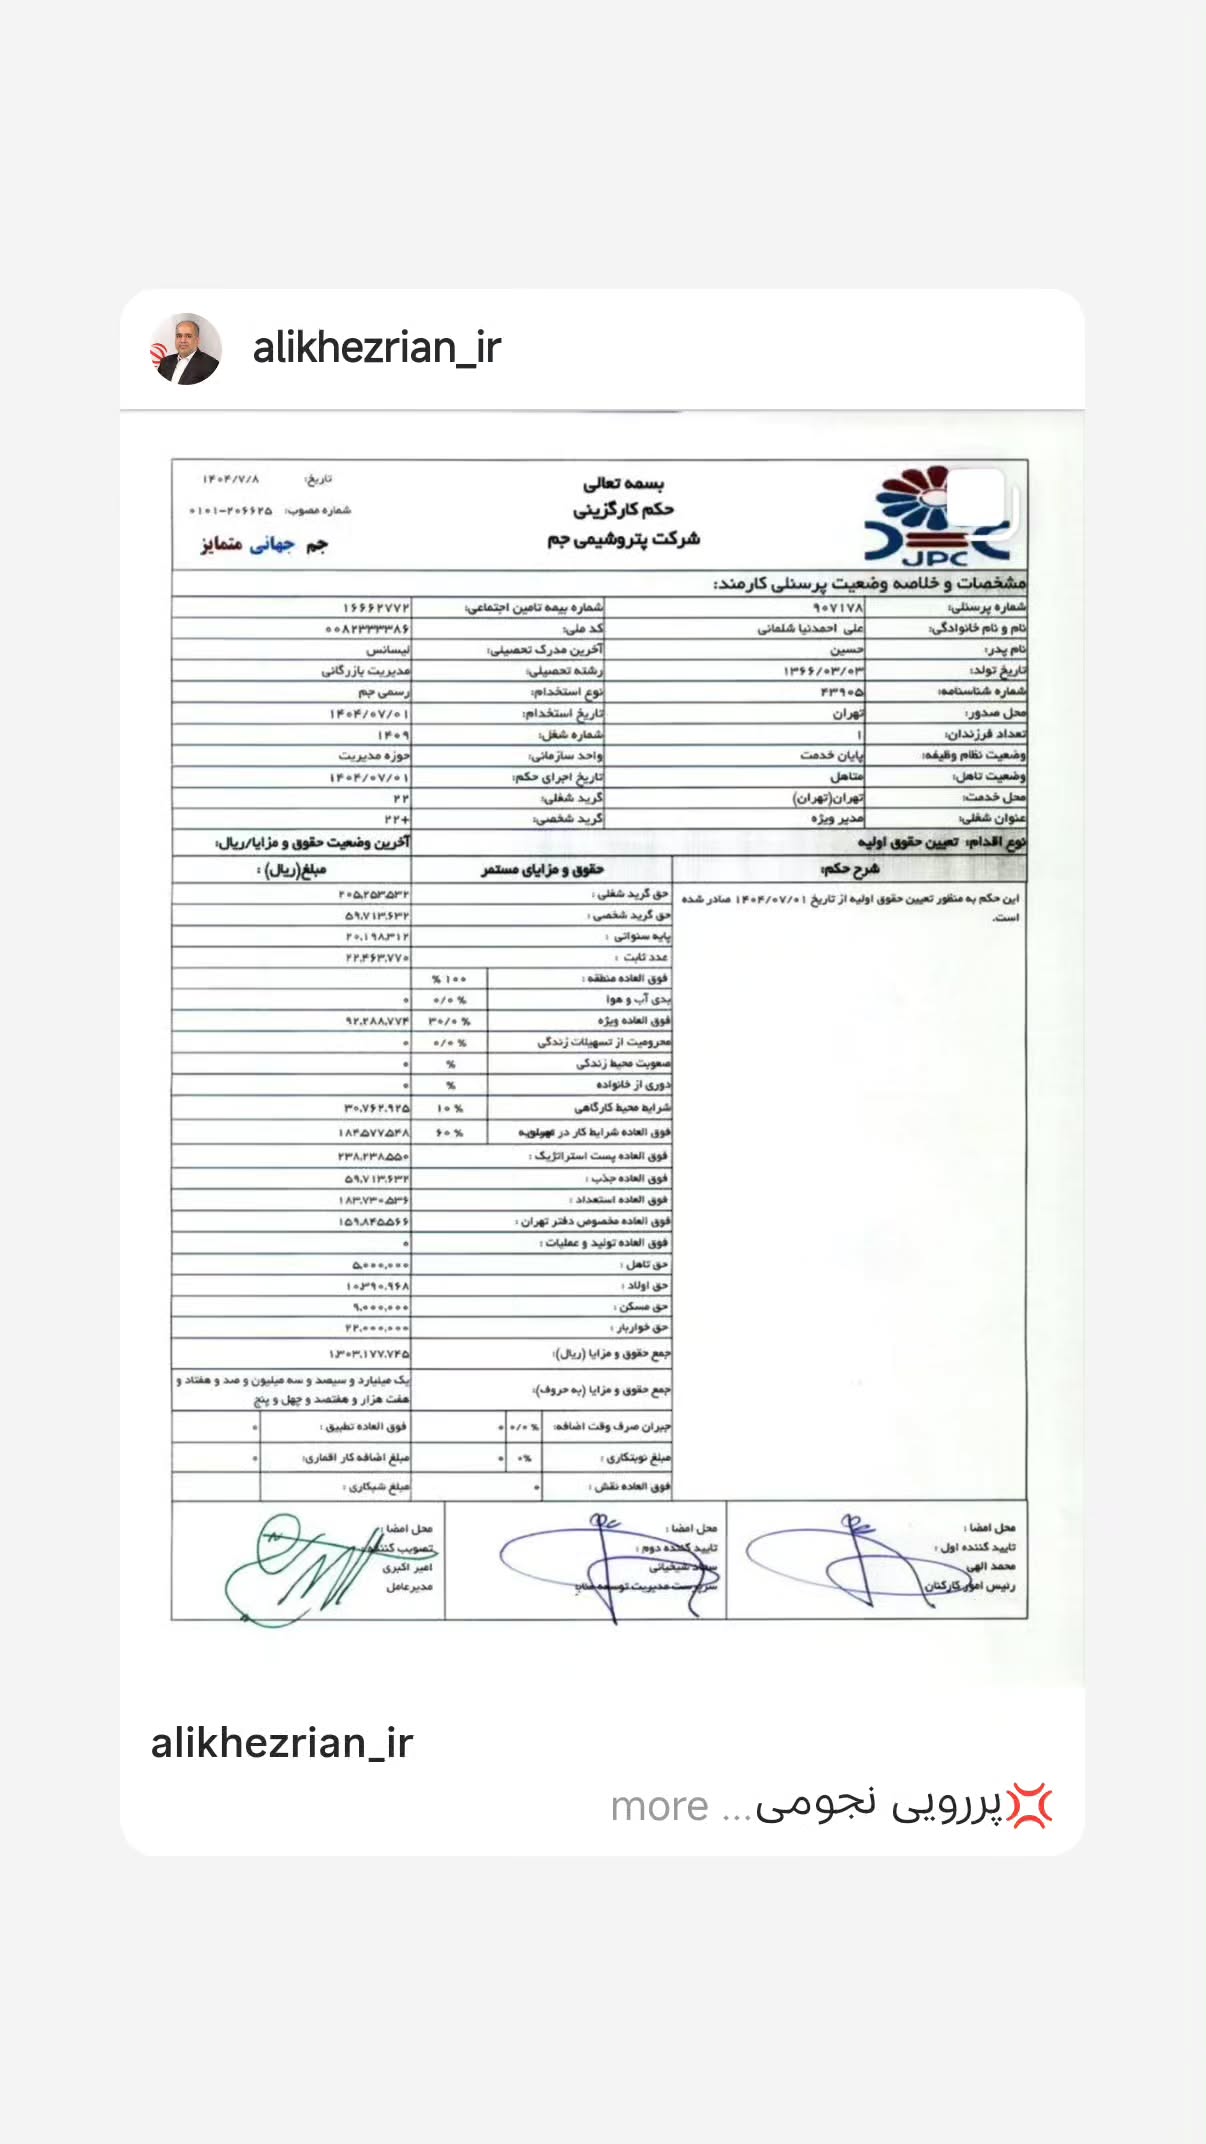 alikhezrian_ir
بسمه تعالی
حکم کارگزینی
شرکت پتروشیمی جم
JPC
تاریخ: ۱۴۰۴/۷/۸
شماره مصوب: ۲۰۶۶۲۵-۰۱۰۱
جم جهانی متمایز
مشخصات و خلاصه وضعیت پرسنلی کارمند:
شماره پرسنلی: ۹۰۷۱۷۸ شماره بیمه تامین اجتماعی: ۱۶۶۶۲۷۷۲
نام و نام خانوادگی: علی احمدنیا شلمانی کد ملی: ۰۰۸۲۳۳۳۳۸۶
نام پدر: حسین آخرین مدرک تحصیلی: لیسانس
تاریخ تولد: ۱۳۶۶/۰۳/۰۳ رشته تحصیلی: مدیریت بازرگانی
شماره شناسنامه: ۴۳۹۰۵ نوع استخدام: رسمی جم
محل صدور: تهران تاریخ استخدام: ۱۴۰۴/۰۷/۰۱
تعداد فرزندان: ۱ شماره شغل: ۱۴۰۹
وضعیت نظام وظیفه: پایان خدمت واحد سازمانی: حوزه مدیریت
وضعیت تاهل: متاهل تاریخ اجرای حکم: ۱۴۰۴/۰۷/۰۱
محل خدمت: تهران(تهران) گرید شغلی: ۲۲
عنوان شغلی: مدیر ویژه گرید شخصی: ۲۲+
نوع اقدام: تعیین حقوق اولیه آخرین وضعیت حقوق و مزایا/ریال:
شرح حکم: حقوق و مزایای مستمر مبلغ(ریال) :
این حکم به منظور تعیین حقوق اولیه از تاریخ ۱۴۰۴/۰۷/۰۱ صادر شده
است.
حق گرید شغلی : ۲۰۵,۲۵۳,۵۳۲
حق گرید شخصی : ۵۹,۷۱۳,۶۳۲
پایه سنواتی : ۲۰,۱۹۸,۳۱۲
عدد ثابت : ۲۲,۴۶۳,۷۷۰
فوق العاده منطقه : ۱۰۰ %
بدی آب و هوا ۰/۰ % ۰
فوق العاده ویژه ۳۰/۰ % ۹۲,۲۸۸,۷۷۴
محرومیت از تسهیلات زندگی ۰/۰ % ۰
صعوبت محیط زندگی % ۰
دوری از خانواده % ۰
شرایط محیط کارگاهی ۱۰ % ۳۰,۷۶۲,۹۲۵
فوق العاده شرایط کار در ۶۰ % ۱۸۴,۵۷۷,۵۴۸
فوق العاده پست استراتژیک : ۲۳۸,۲۳۸,۵۵۰
فوق العاده جذب : ۵۹,۷۱۳,۶۳۲
فوق العاده استعداد : ۱۸۳,۷۳۰,۵۳۶
فوق العاده مخصوص دفتر تهران : ۱۵۹,۸۴۵,۵۶۶
فوق العاده تولید و عملیات : ۰
حق تاهل : ۵,۰۰۰,۰۰۰
حق اولاد : ۱۰,۳۹۰,۹۶۸
حق مسکن : ۹,۰۰۰,۰۰۰
حق خواربار : ۲۲,۰۰۰,۰۰۰
جمع حقوق و مزایا (ریال): ۱,۳۰۳,۱۷۷,۷۴۵
جمع حقوق و مزایا (به حروف): یک میلیارد و سیصد و سه میلیون و صد و هفتاد و
هفت هزار و هفتصد و چهل و پنج
جبران صرف وقت اضافه: ۰/۰ % ۰ فوق العاده تطبیق : ۰
مبلغ نوبتکاری : ۰% ۰ مبلغ اضافه کار اقماری: ۰
فوق العاده نقش : ۰ مبلغ شبکاری :
محل امضا :
تایید کننده اول :
محمد الهی
رئیس امور کارکنان
محل امضا :
تایید کننده دوم :
سعاد شیخیانی
سرپرست مدیریت توسعه منابع
محل امضا :
تصویب کننده :
امیر اکبری
مدیرعامل
alikhezrian_ir
💢پررویی نجومی... more